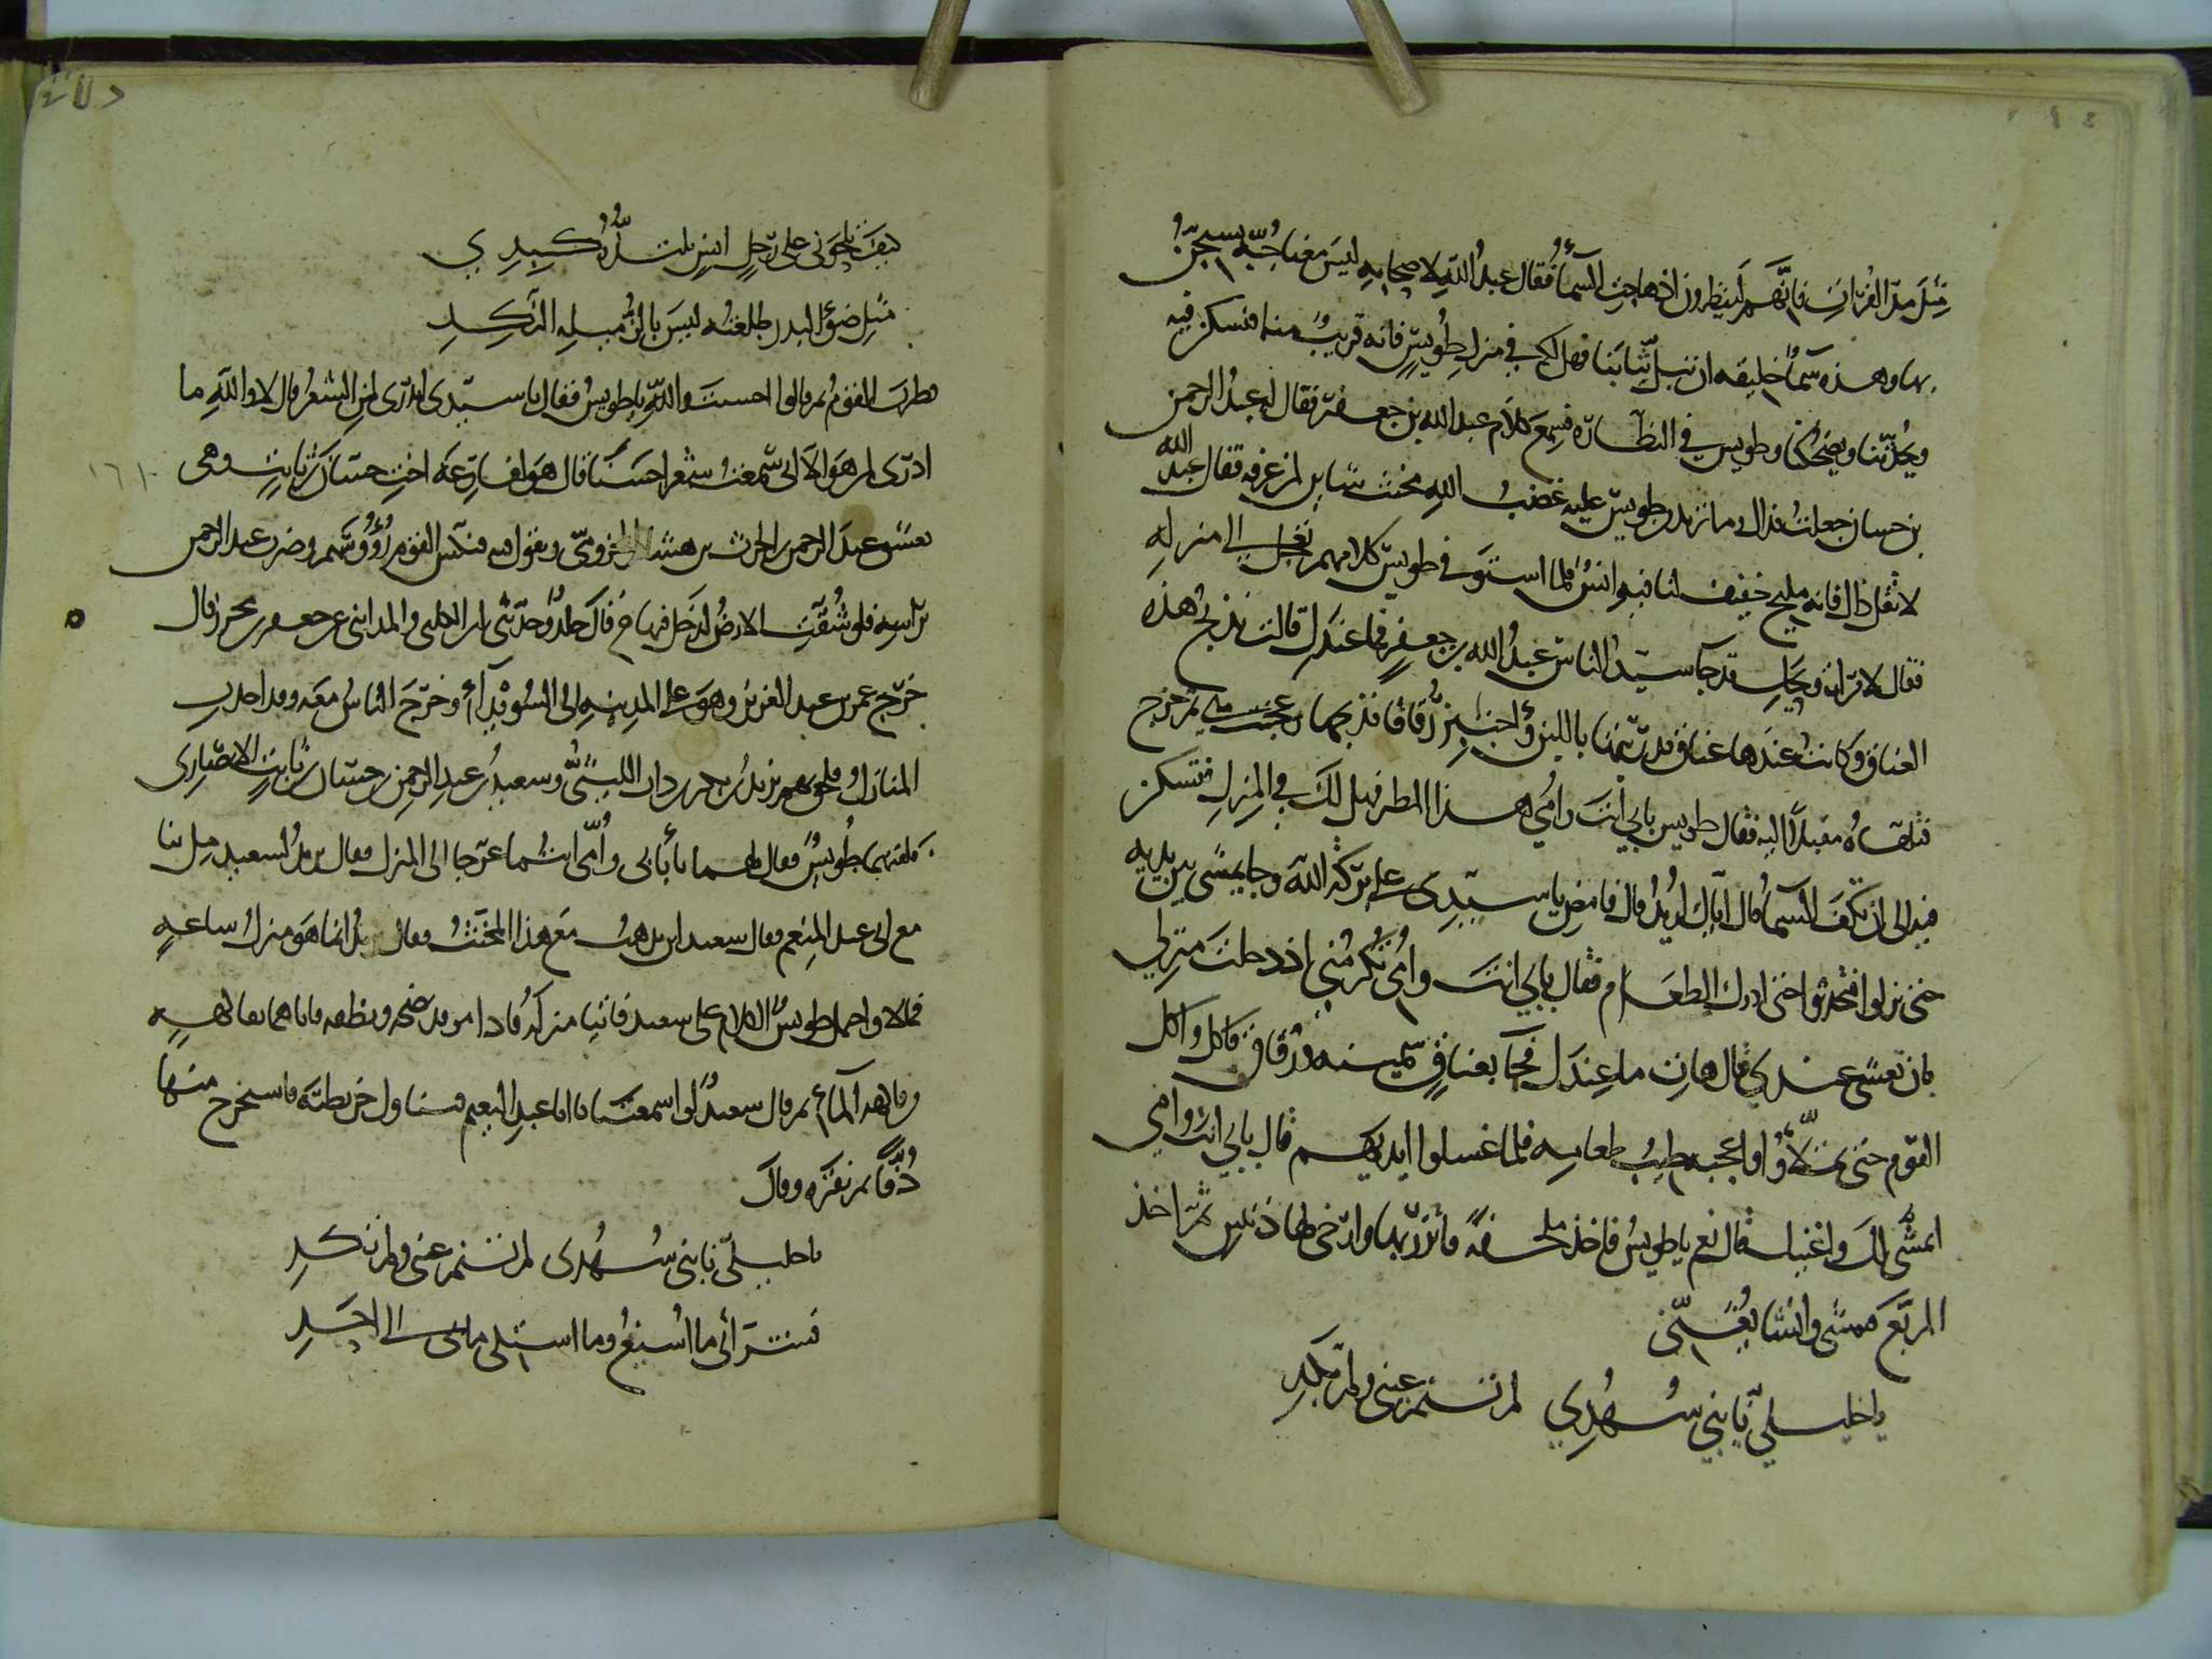 مثل مدّ الفرات فانهم لينظرون اذ هاجت السماء فقال عبد الله لاصحابه ليس معنا جبّة نستجنّ
بها وهذه سماء خليقه ان تبل ثيابنا فهل لكم في منزل طويس فانه قريب منا فنسكن فيه
ويحدّثنا ويضحكنا وطويس في النظاره فسمع كلام عبد الله بن جعفر فقال له عبد الرحمن
بن حسان جعلت فداك وما تريد من طويس عليه غضب الله مخنث شاين لمن عرفه فقال عبد الله
لا تقل ذاك فانه مليح خفيف لنا فيه انس فلما استوفى طويس كلامهم تعجل الى منزله
فقال لامراته ويحك قد جاء سيد الناس عبد الله بن جعفر فما عندك قالت نذبح هذه
العناق وكانت عندها عناق قد ربّتها باللبن واختبز رقاقا فذبحها وعجنت هي ثم خرج
فتلقاه مقبلا اليه فقال طويس بابي انت وامي هذا المطر فهل لك في المنزل فتسكن
فيه الى ان تكف السماء قال اياك اريد قال فامض يا سيدي على بركة الله وجا يمشي بين يديه
حتى نزلوا فتحدثوا حتى ادرك الطعام فقال بابي انت وامي تكرمني اذ دخلت منزلي
بان تعشى عندي قال هات ما عندك فجا بعناق سمينه ورقاق فاكل واكل
القوم حتى تملأوا واعجبه طيب طعامه فلما غسلوا ايديهم قال بابي انت وامي
امشّى لك واغنيك قال نعم يا طويس فاخذ ملحفة فاتزر بها وارخى لها ذنبين ثم اخذ
المربع فمشى وانشا يغنّي
يا خليلي نابني سهدي لم تنم عيني ولم تكد
كيف تلحوني على رجل انس تلتذه كبدي
مثل ضوء البدر طلعته ليس بالزميله النكد
فطرب القوم ثم قالوا احسنت والله يا طويس فقال يا سيدي اتدري لمن الشعر قال لا والله ما
ادري لمن هو الا اني سمعت شعرا حسنا قال هو لفارعه اخت حسان بن ثابت وهي
تعشق عبد الرحمن بن الحرث بن هشام المخزومي وتقول فيه فنكس القوم رؤوسهم وضرب عبد الرحمن
براسه فلو شقت الارض لدخل فيها قال وحدثني ابن الكلبي والمدايني عن جعفر بن محرز قال
خرج عمر بن عبد العزيز وهو على المدينه الى السويداء وخرج الناس معه وقد اخذت
المنازل فلحق بهم يزيد بن بكر بن داب الليثي وسعيد بن عبد الرحمن بن حسان بن ثابت الانصاري
فلقيهما طويس فقال لهما بابي وامي انتما عرّجا الى المنزل فقال يزيد لسعيد مل بنا
مع ابي عبد المنعم فقال سعيد اين تذهب مع هذا المخنث فقال يزيد انما هو منزل ساعه
فمالا واحتمل طويس الكلام على سعيد فاتيا منزله فاذا هو قد نضحه ونظفه فاتاهما بفاكهه
وفاكهه الماء ثم قال سعيد لو اسمعتنا يا ابا عبد النعيم فتناول خريطته فاستخرج منها
دفّا ثم نقره وقال
يا خليلي نابني سهدي لم تنم عيني ولم تكد
فشرابي ما اسيغ وما اشتكي ما بي الى احد
١٦١